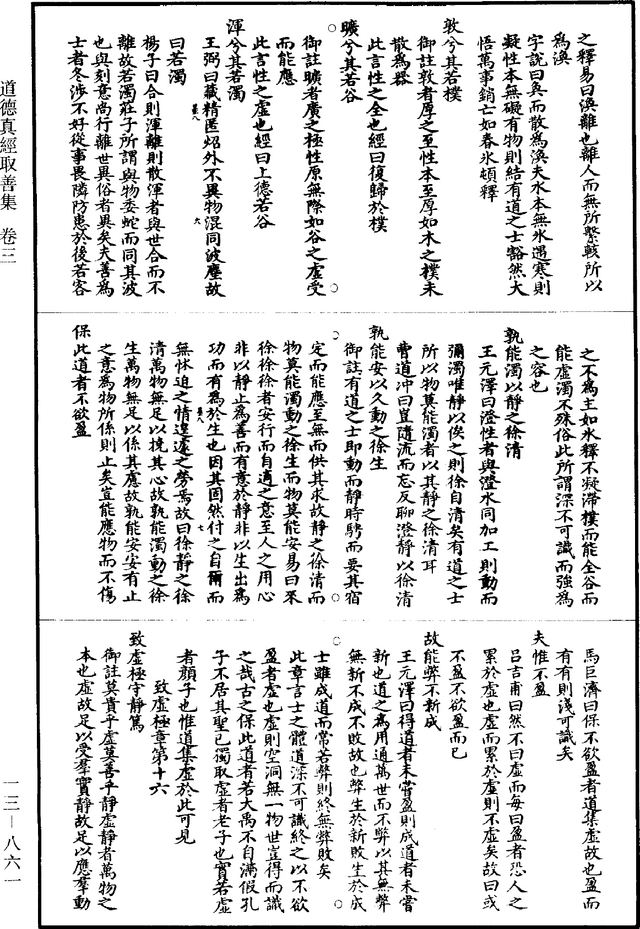 之釋易曰渙離也離人而無所繫戟所以
為渙
字說曰奐而散為渙夫水本無冰遇寒則
凝性本無礙有物則結有道之士豁然大
悟萬事銷亡如春冰頓釋
敦兮其若樸
御註敦者厚之至性本至厚如木之樸未
散為器
此言性之全也經曰復歸於樸
曠兮其若谷
御註曠者廣之極性原無際如谷之虛受
而能應
此言性之虛也經曰上德若谷
渾兮其若濁
王弼曰藏精匿炤外不異物混同波塵故
曰若濁
楊子曰合則渾離則散渾者與世合而不
離故若濁莊子所謂與物委蛇而同其波
也與刻意尚行離世異俗者異矣夫善為
士者冬涉不好從事畏隣防患於後若客
之不為主如水釋不凝滯樸而能全谷而
能虛濁不殊俗此所謂深不可識而強為
之容也
孰能濁以靜之徐清
王元澤曰澄性者與澄水同加工則動而
彌濁唯靜以俟之則徐自清矣有道之士
所以物莫能濁者以其靜之徐清耳
曹道冲曰豈隨流而忘反聊澄靜以徐清
孰能安以久動之徐生
御註有道之士即動而靜時騁而要其宿
定而能應至無而供其求故靜之徐清而
物莫能濁動之徐生而物莫能安易曰來
徐徐徐者安行而自適之意至人之用心
非以靜止為善而有意於靜非以生出為
功而有為於生也因其固然付之自爾而
無怵迫之情遑遽之勞焉故曰徐靜之徐
清萬物無足以撓其心故孰能濁動之徐
生萬物無足以係其慮故孰能安安有止
之意為物所係則止矣豈能應物而不傷
保此道者不欲盈
馬巨濟曰保不欲盈者道集虛故也盈而
有有則淺可識矣
夫惟不盈
呂吉甫曰然不曰虛而每曰盈者恐人之
累於虛也虛而累於虛則不虛矣故曰或
不盈不欲盈而已
故能弊不新成
王元澤曰得道者未嘗盈則成道者未嘗
新也道之為用通萬世而不弊以其無弊
無新不成不敗故也弊生於新敗生於成
士雖成道而常若弊則終無弊敗矣
此章言士之體道深不可識終之以不欲
盈者虛也虛則空洞無一物世豈得而識
之哉古之保此道者若大禹不自滿假孔
子不居其聖已獨取虛者老子也實若虛
者顏子也惟道集虛於此可見
致虛極章第十六
致虛極守靜篤
御註莫貴乎虛莫善乎靜虛靜者萬物之
本也虛故足以受羣實靜故足以應羣動
道德真經取善集　卷三
一三－八六一